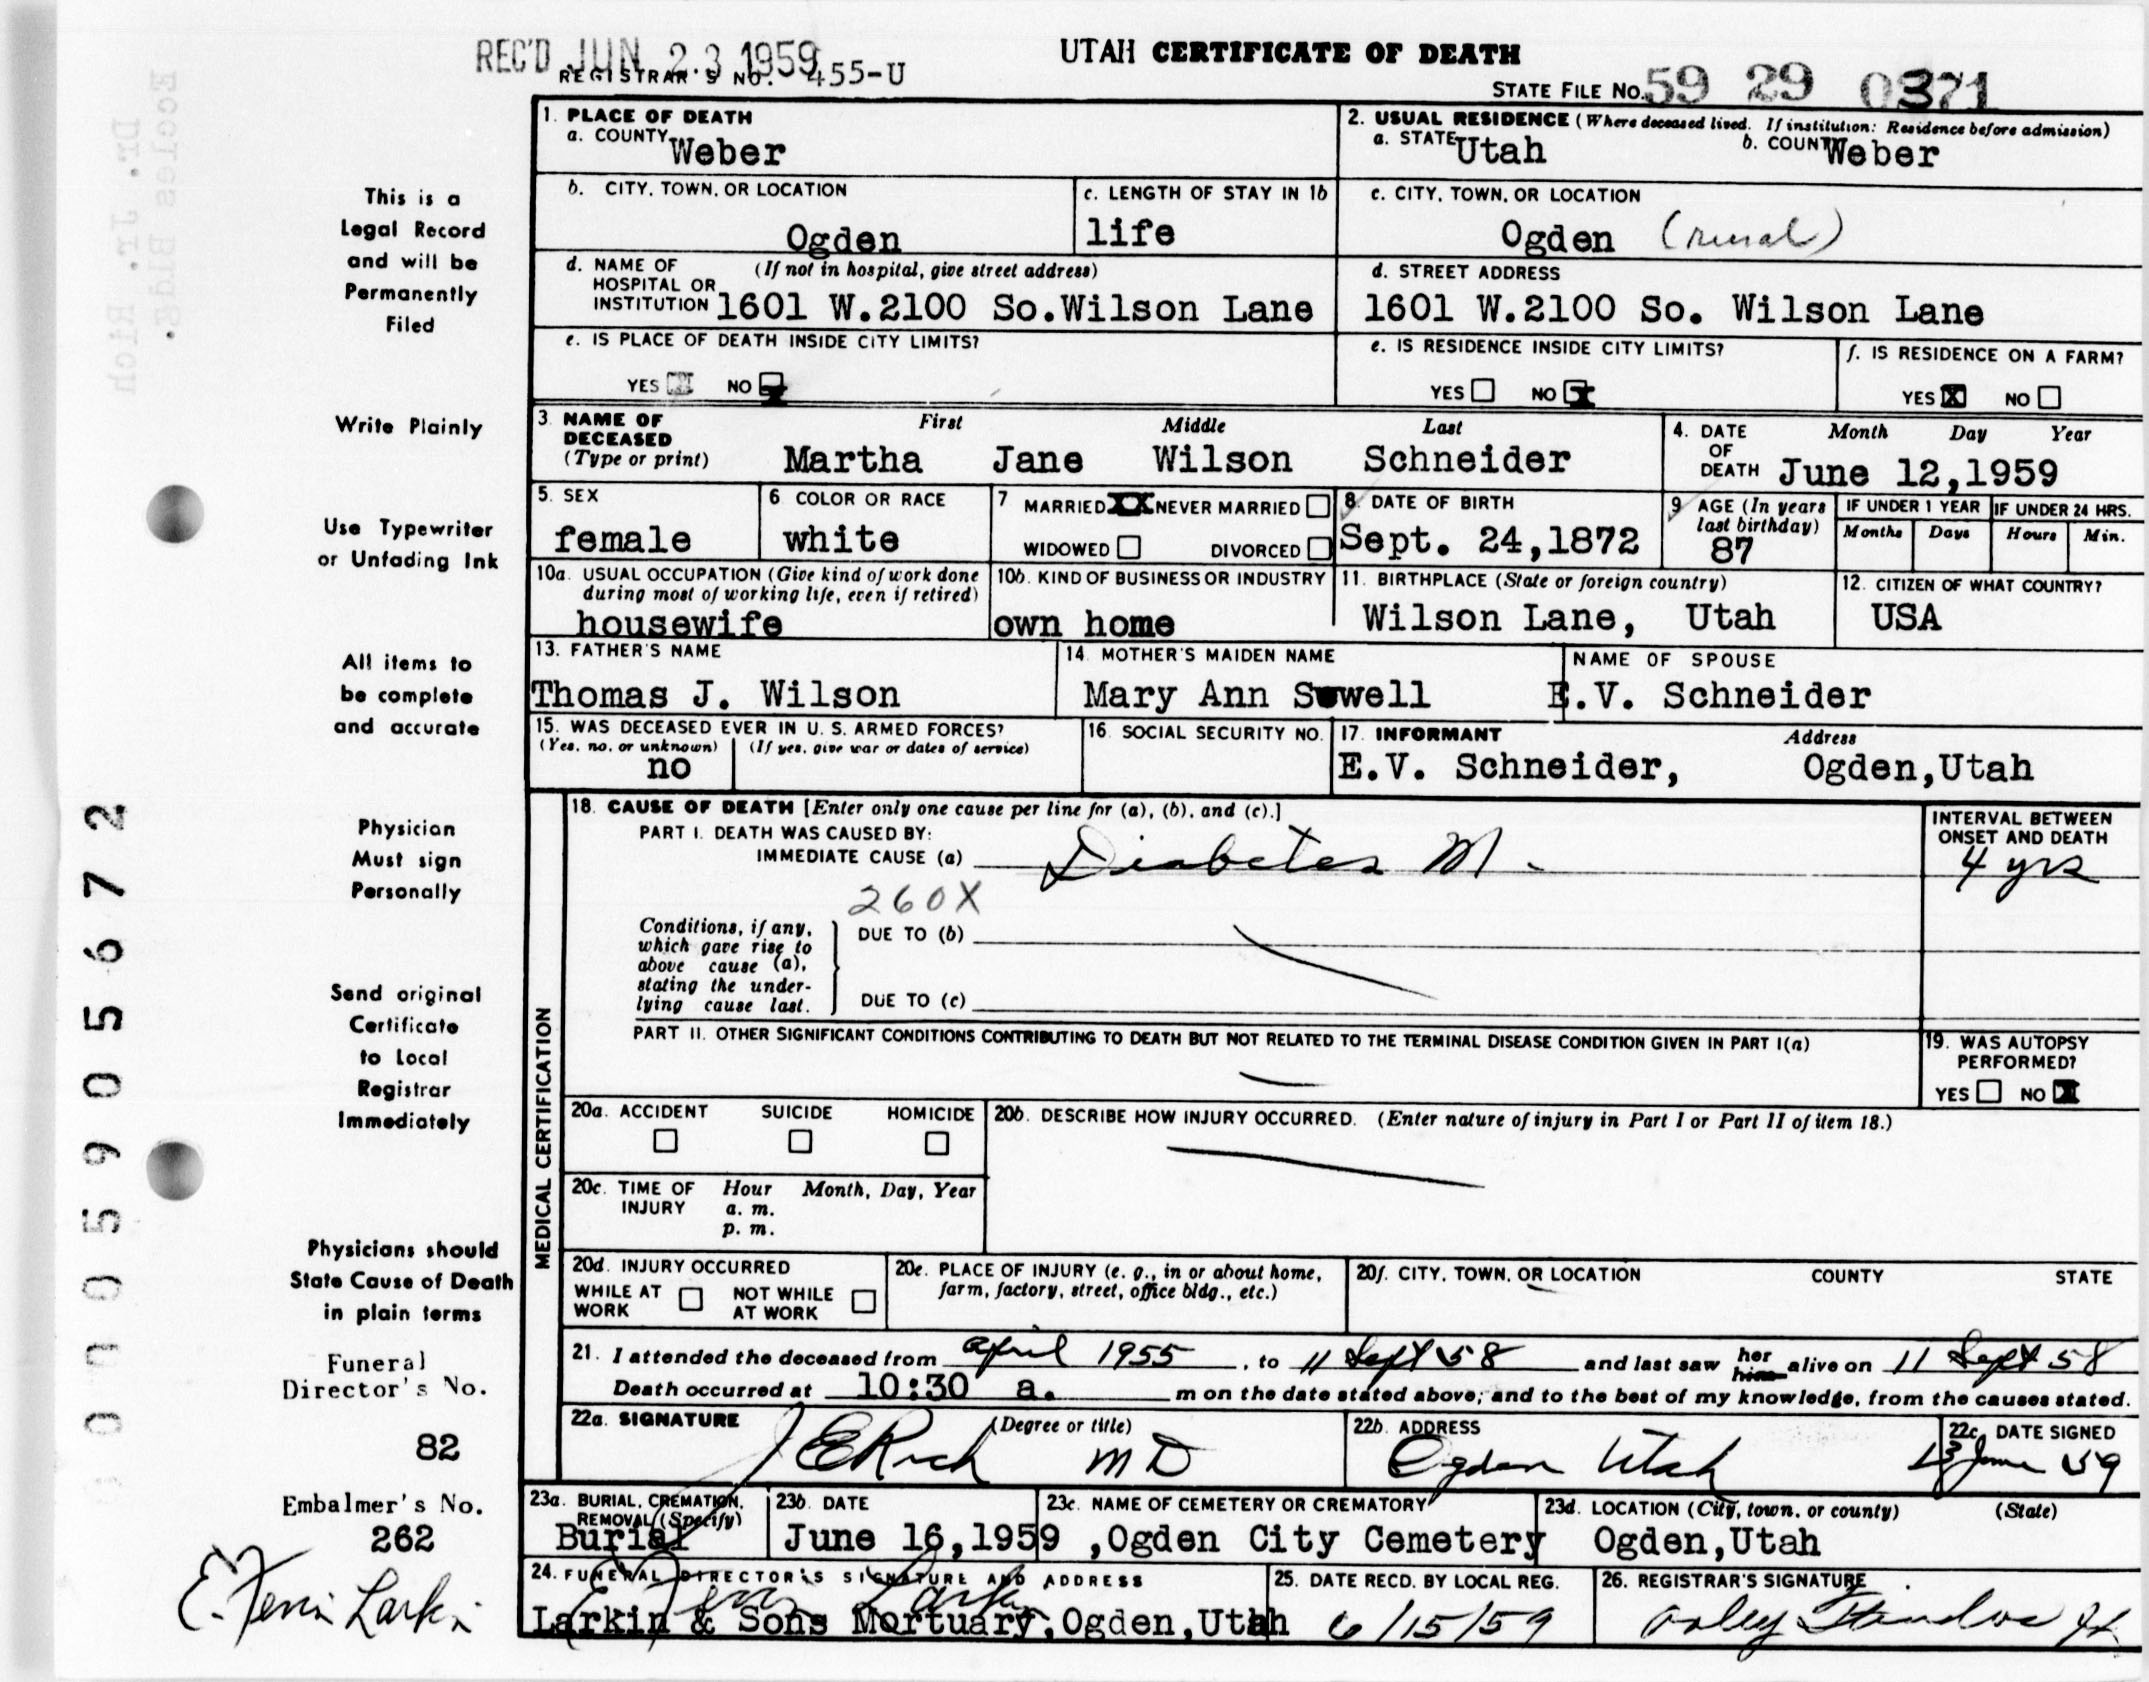 REC'D JUN 23 1959
REGISTRAR'S NO. 455-U
UTAH CERTIFICATE OF DEATH
STATE FILE No. 59 29 0371
1. PLACE OF DEATH
a. COUNTY Weber
2. USUAL RESIDENCE (Where deceased lived. If institution: Residence before admission)
a. STATE Utah b. COUNTY Weber
b. CITY, TOWN, OR LOCATION Ogden
c. LENGTH OF STAY IN 1b life
c. CITY, TOWN, OR LOCATION Ogden (rural)
d. NAME OF HOSPITAL OR INSTITUTION (If not in hospital, give street address) 1601 W.2100 So.Wilson Lane
d. STREET ADDRESS 1601 W.2100 So. Wilson Lane
e. IS PLACE OF DEATH INSIDE CITY LIMITS? YES NO X
e. IS RESIDENCE INSIDE CITY LIMITS? YES NO X
f. IS RESIDENCE ON A FARM? YES X NO
3. NAME OF DECEASED (Type or print) First Middle Last
Martha Jane Wilson Schneider
4. DATE OF DEATH Month Day Year
June 12,1959
5. SEX female
6 COLOR OR RACE white
7 MARRIED XX NEVER MARRIED WIDOWED DIVORCED
8. DATE OF BIRTH Sept. 24,1872
9 AGE (In years last birthday) 87
IF UNDER 1 YEAR Months Days
IF UNDER 24 HRS. Hours Min.
10a. USUAL OCCUPATION (Give kind of work done during most of working life, even if retired) housewife
10b. KIND OF BUSINESS OR INDUSTRY own home
11. BIRTHPLACE (State or foreign country) Wilson Lane, Utah
12. CITIZEN OF WHAT COUNTRY? USA
13. FATHER'S NAME Thomas J. Wilson
14. MOTHER'S MAIDEN NAME Mary Ann Sewell
NAME OF SPOUSE E.V. Schneider
15. WAS DECEASED EVER IN U. S. ARMED FORCES? (Yes, no, or unknown) (If yes, give war or dates of service) no
16. SOCIAL SECURITY NO.
17. INFORMANT Address
E.V. Schneider, Ogden,Utah
MEDICAL CERTIFICATION
18. CAUSE OF DEATH [Enter only one cause per line for (a), (b), and (c).]
PART I. DEATH WAS CAUSED BY:
IMMEDIATE CAUSE (a) Diabetes M.
INTERVAL BETWEEN ONSET AND DEATH
4 yrs
260X
Conditions, if any, which gave rise to above cause (a), stating the underlying cause last.
DUE TO (b)
DUE TO (c)
PART II. OTHER SIGNIFICANT CONDITIONS CONTRIBUTING TO DEATH BUT NOT RELATED TO THE TERMINAL DISEASE CONDITION GIVEN IN PART I(a)
19. WAS AUTOPSY PERFORMED? YES NO X
20a. ACCIDENT SUICIDE HOMICIDE
20b. DESCRIBE HOW INJURY OCCURRED. (Enter nature of injury in Part I or Part II of item 18.)
20c. TIME OF INJURY Hour Month, Day, Year
a. m.
p. m.
20d. INJURY OCCURRED
WHILE AT WORK NOT WHILE AT WORK
20e. PLACE OF INJURY (e. g., in or about home, farm, factory, street, office bldg., etc.)
20f. CITY, TOWN, OR LOCATION COUNTY STATE
21. I attended the deceased from April 1955, to 11 Sept 58 and last saw her him alive on 11 Sept 58
Death occurred at 10:30 a. m on the date stated above; and to the best of my knowledge, from the causes stated.
22a. SIGNATURE (Degree or title) J E Rich MD
22b. ADDRESS Ogden Utah
22c. DATE SIGNED 13 June 59
23a. BURIAL, CREMATION, REMOVAL (Specify) Burial
23b. DATE June 16,1959
23c. NAME OF CEMETERY OR CREMATORY ,Ogden City Cemetery
23d. LOCATION (City, town, or county) (State) Ogden,Utah
24. FUNERAL DIRECTOR'S SIGNATURE AND ADDRESS
Larkin & Sons Mortuary,Ogden,Utah
25. DATE RECD. BY LOCAL REG. 6/15/59
26. REGISTRAR'S SIGNATURE
This is a
Legal Record
and will be
Permanently
Filed
Write Plainly
Use Typewriter
or Unfading Ink
All items to
be complete
and accurate
Physician
Must sign
Personally
Send original
Certificate
to Local
Registrar
Immediately
Physicians should
State Cause of Death
in plain terms
Funeral
Director's No.
82
Embalmer's No.
262
Larkin
Dr. Jr. Rich
Eccles Bldg.
0005905672